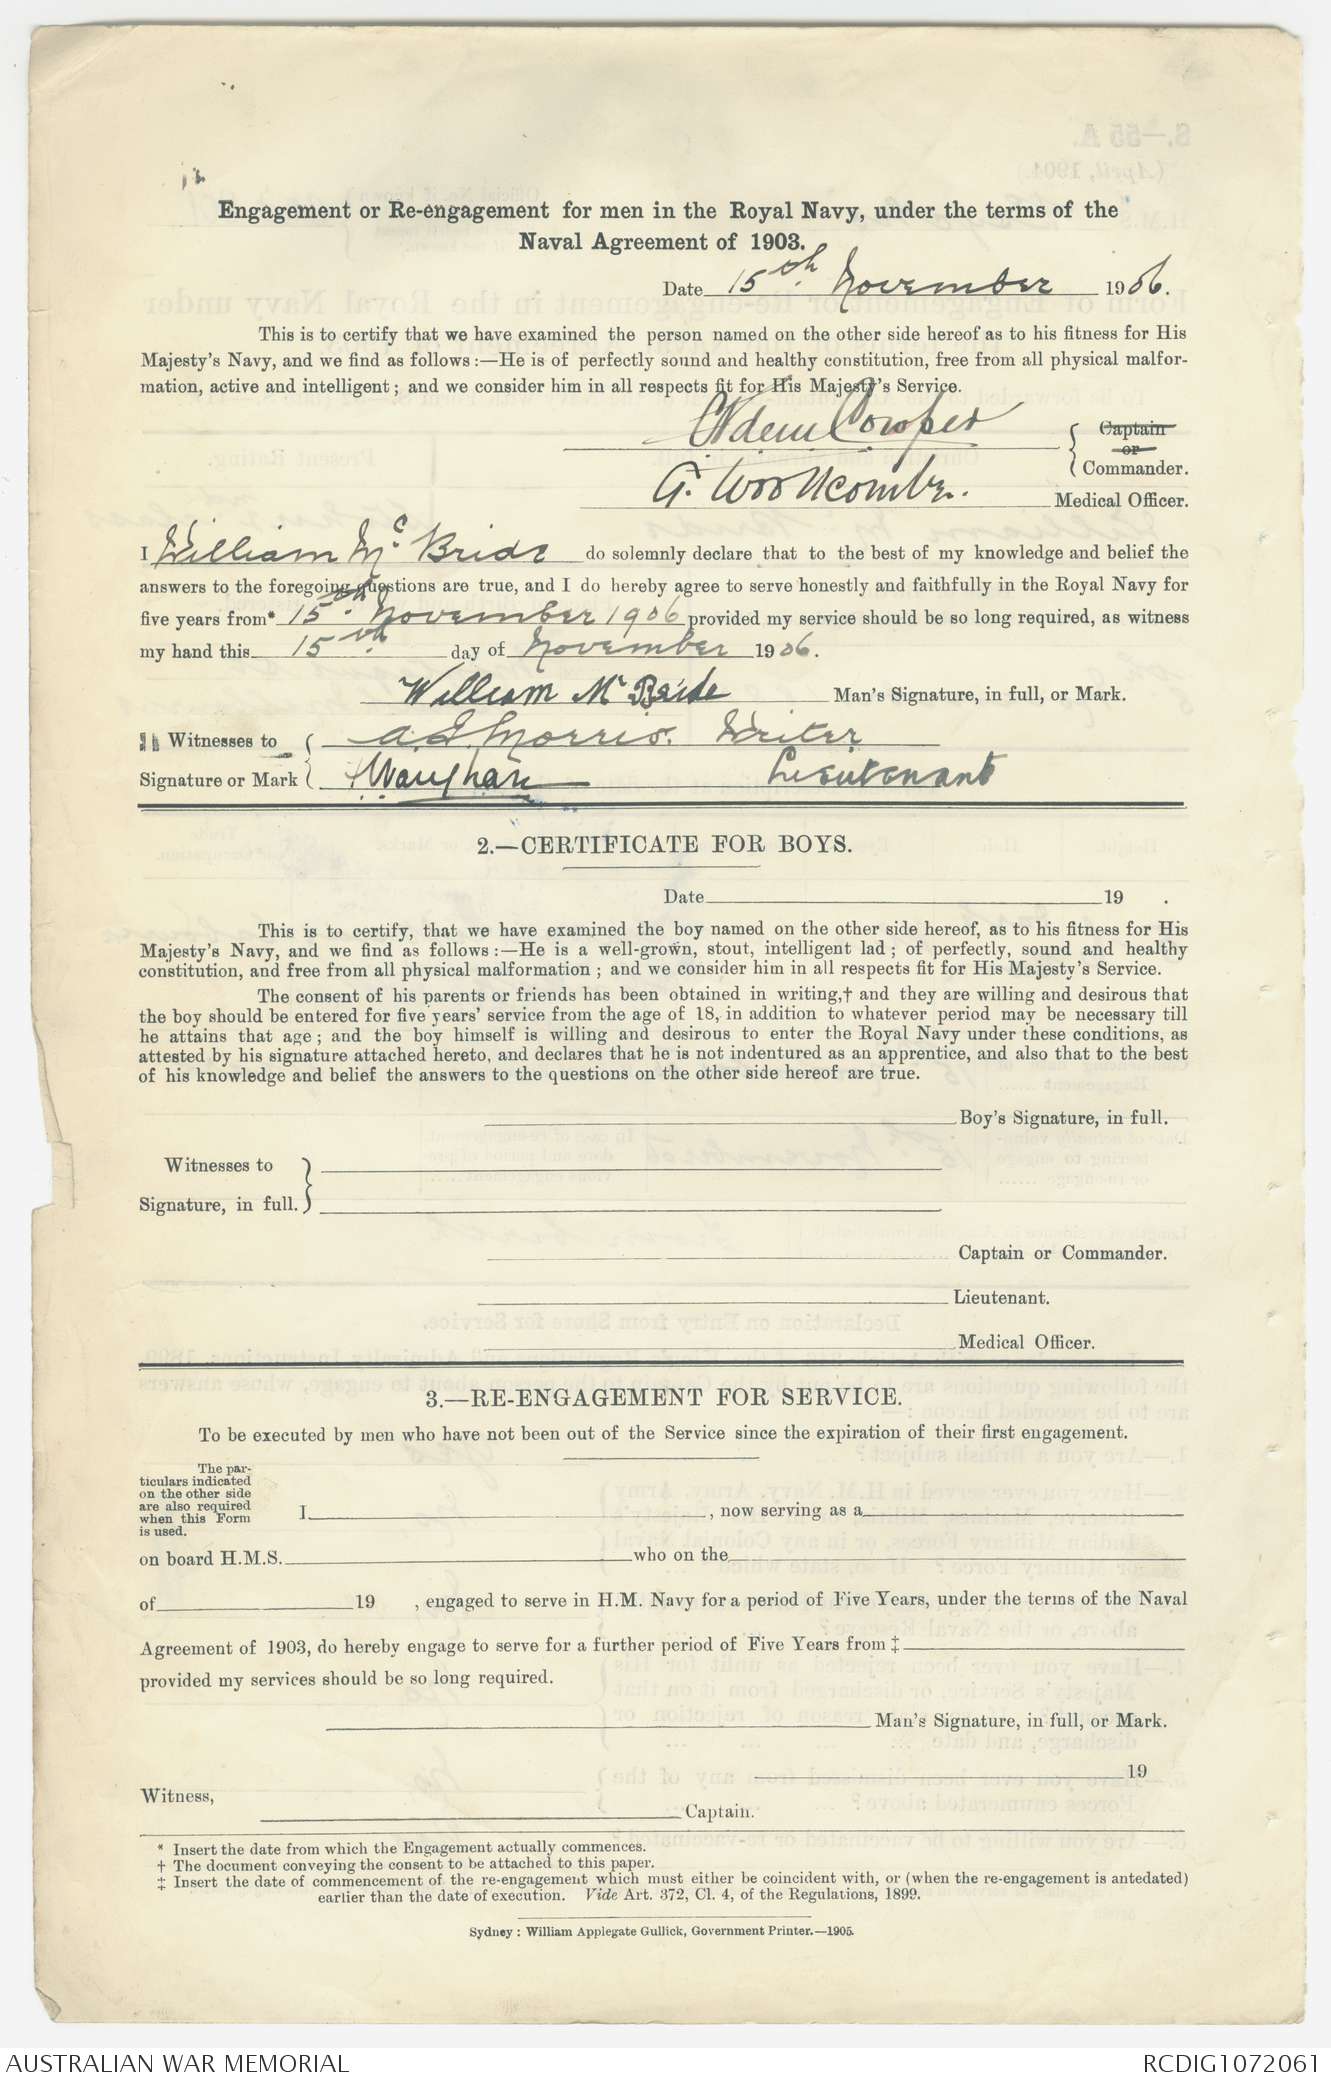 Engagement or Re-engagement for men in the Royal Navy, under the terms of the
Naval Agreement of 1903.
Date 15th November 1906.
This is to certify that we have examined the person named on the other side hereof as to his fitness for His
Majesty's Navy, and we find as follows:—He is of perfectly sound and healthy constitution, free from all physical malfor-
mation, active and intelligent; and we consider him in all respects fit for His Majesty's Service.
Cowper
Captain
or
Commander.
G. Woollcombe. Medical Officer.
I William McBride do solemnly declare that to the best of my knowledge and belief the
answers to the foregoing questions are true, and I do hereby agree to serve honestly and faithfully in the Royal Navy for
five years from* 15th November 1906 provided my service should be so long required, as witness
my hand this 15th day of November 1906.
William McBride Man's Signature, in full, or Mark.
Witnesses to A. J. Morris. Writer
Signature or Mark Vaughan Lieutenant
2.—CERTIFICATE FOR BOYS.
Date 19 .
This is to certify, that we have examined the boy named on the other side hereof, as to his fitness for His
Majesty's Navy, and we find as follows:—He is a well-grown, stout, intelligent lad; of perfectly, sound and healthy
constitution, and free from all physical malformation; and we consider him in all respects fit for His Majesty's Service.
The consent of his parents or friends has been obtained in writing,† and they are willing and desirous that
the boy should be entered for five years' service from the age of 18, in addition to whatever period may be necessary till
he attains that age; and the boy himself is willing and desirous to enter the Royal Navy under these conditions, as
attested by his signature attached hereto, and declares that he is not indentured as an apprentice, and also that to the best
of his knowledge and belief the answers to the questions on the other side hereof are true.
Boy's Signature, in full.
Witnesses to
Signature, in full.
Captain or Commander.
Lieutenant.
Medical Officer.
3.—RE-ENGAGEMENT FOR SERVICE.
To be executed by men who have not been out of the Service since the expiration of their first engagement.
The par-
ticulars indicated
on the other side
are also required
when this Form
is used.
I , now serving as a
on board H.M.S. who on the
of 19 , engaged to serve in H.M. Navy for a period of Five Years, under the terms of the Naval
Agreement of 1903, do hereby engage to serve for a further period of Five Years from ‡
provided my services should be so long required.
Man's Signature, in full, or Mark.
19
Witness,
Captain.
* Insert the date from which the Engagement actually commences.
† The document conveying the consent to be attached to this paper.
‡ Insert the date of commencement of the re-engagement which must either be coincident with, or (when the re-engagement is antedated)
earlier than the date of execution. Vide Art. 372, Cl. 4, of the Regulations, 1899.
Sydney: William Applegate Gullick, Government Printer.—1905.
AUSTRALIAN WAR MEMORIAL
RCDIG1072061